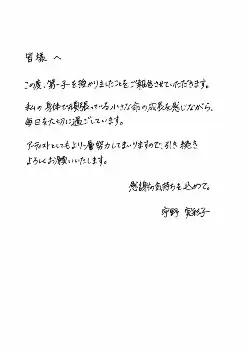 皆様へ
この度、第一子を授かりましたことをご報告させていただきます。
私の身体で頑張っている小さな命の成長を感じながら、
毎日を大切に過ごしています。
アーティストとしてもより一層努力してまいりますので、引き続き
よろしくお願いいたします。
感謝の気持ちを込めて。
宇野 実彩子